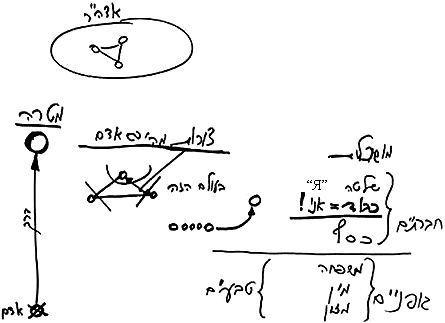 אדה"ר
מטרה
אדם
מושכל
שליטה "Я"
כבוד = אני!
כסף
חברתיים
בעולם הזה
דרך
משפחה
מין
מזון
גופניים
טבעיים
אדם